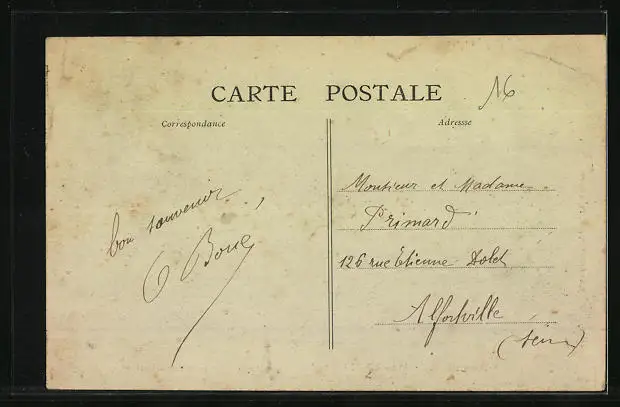 CARTE POSTALE
16
Correspondance
Adressse
bon souvenir
Monsieur et Madame
Primard
126 rue Etienne Dolet
Alfortville
(Seine)